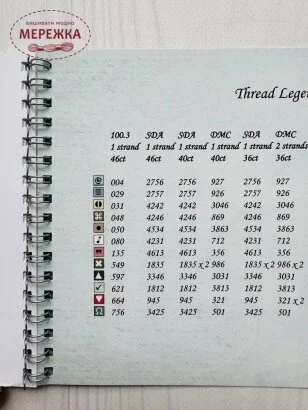 вишивати модно
МЕРЕЖКА
Thread Lege
100.3 SDA SDA DMC SDA DMC
1 strand 1 strand 1 strand 1 strand 1 strand 2 strands
46ct 46ct 40ct 40ct 36ct 36ct
004 2756 2756 927 2756 927
029 2757 2757 926 2757 926
031 4242 4242 3046 4242 3046
048 4246 4246 869 4246 869
050 4534 4534 3863 4534 3863
080 4231 4231 712 4231 712
135 4613 4613 356 4613 356
549 1835 1835 x 2 986 1835 x 2 986 x 2
597 3346 3346 3031 3346 3031
621 1812 1812 3813 1812 3813
664 945 945 321 945 321 x 2
756 3425 3425 501 3425 501